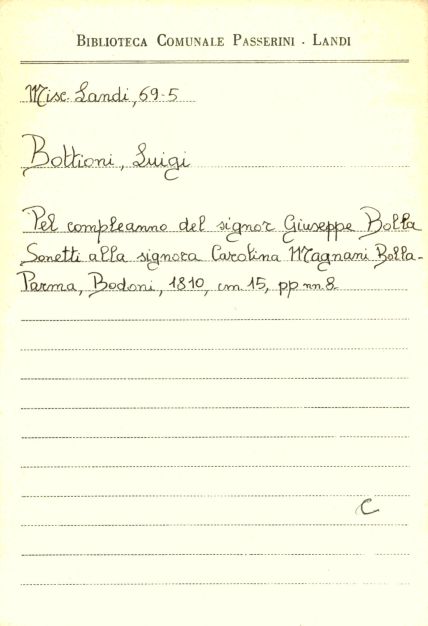 BIBLIOTECA COMUNALE PASSERINI - LANDI
Misc. Landi, 69-5
Bottioni, Luigi
Pel compleanno del signor Giuseppe Bolla
Sonetti alla signora Carolina Magnani Bolla-
Parma, Bodoni, 1810, cm. 15, pp nn. 8
C